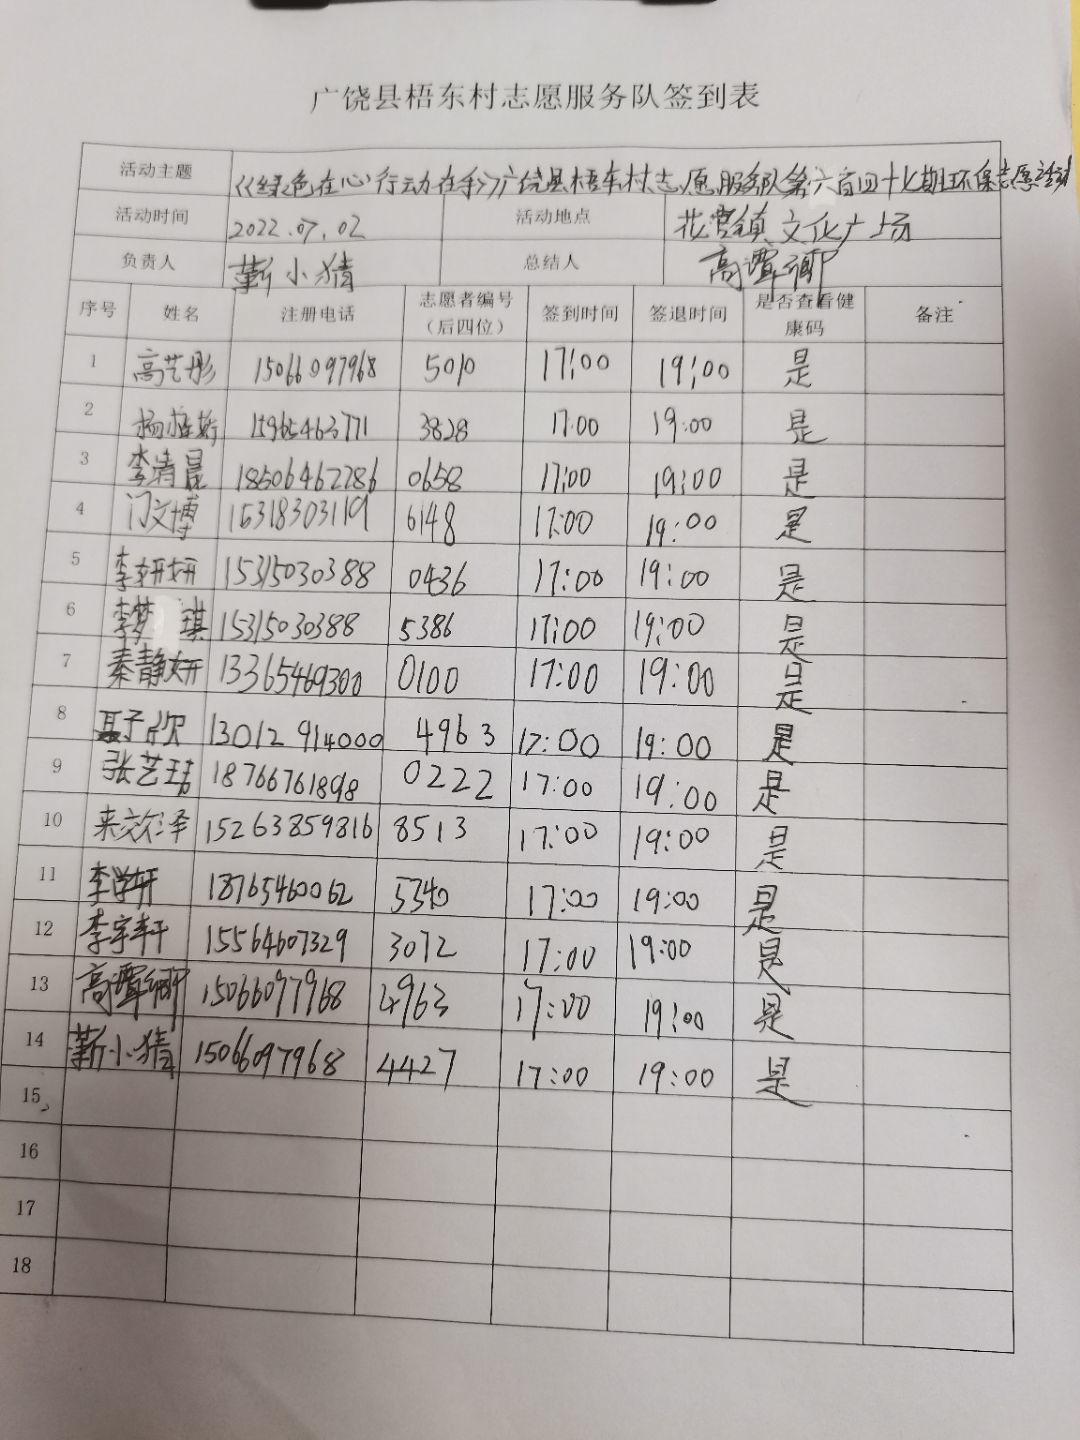 广饶县梧东村志愿服务队签到表
活动主题 《绿色在心行动在手》广饶县梧东村志愿服务队第六百四十七期环保志愿活动
活动时间 2022.07.02 活动地点 花官镇文化广场
负责人 靳小猜 总结人 高谭卿
序号 姓名 注册电话 志愿者编号（后四位） 签到时间 签退时间 是否查看健康码 备注
1 高艺彤 15066097968 5010 17:00 19:00 是
2 15965463771 3828 17:00 19:00 是
3 李清晨 18506462286 0658 17:00 19:00 是
4 门文博 15318303119 6148 17:00 19:00 是
5 李妍妍 15315030388 0436 17:00 19:00 是
6 李梦琪 15315030388 5386 17:00 19:00 是
7 秦静妍 13365469300 0100 17:00 19:00 是
8 聂子欣 13012914000 4963 17:00 19:00 是
9 张艺玮 18766761898 0222 17:00 19:00 是
10 来效泽 15263859816 8513 17:00 19:00 是
11 李学轩 18765460062 5340 17:00 19:00 是
12 李宇轩 15564607329 3072 17:00 19:00 是
13 高谭卿 15066097968 4963 17:00 19:00 是
14 靳小猜 15066097968 4427 17:00 19:00 是
15
16
17
18